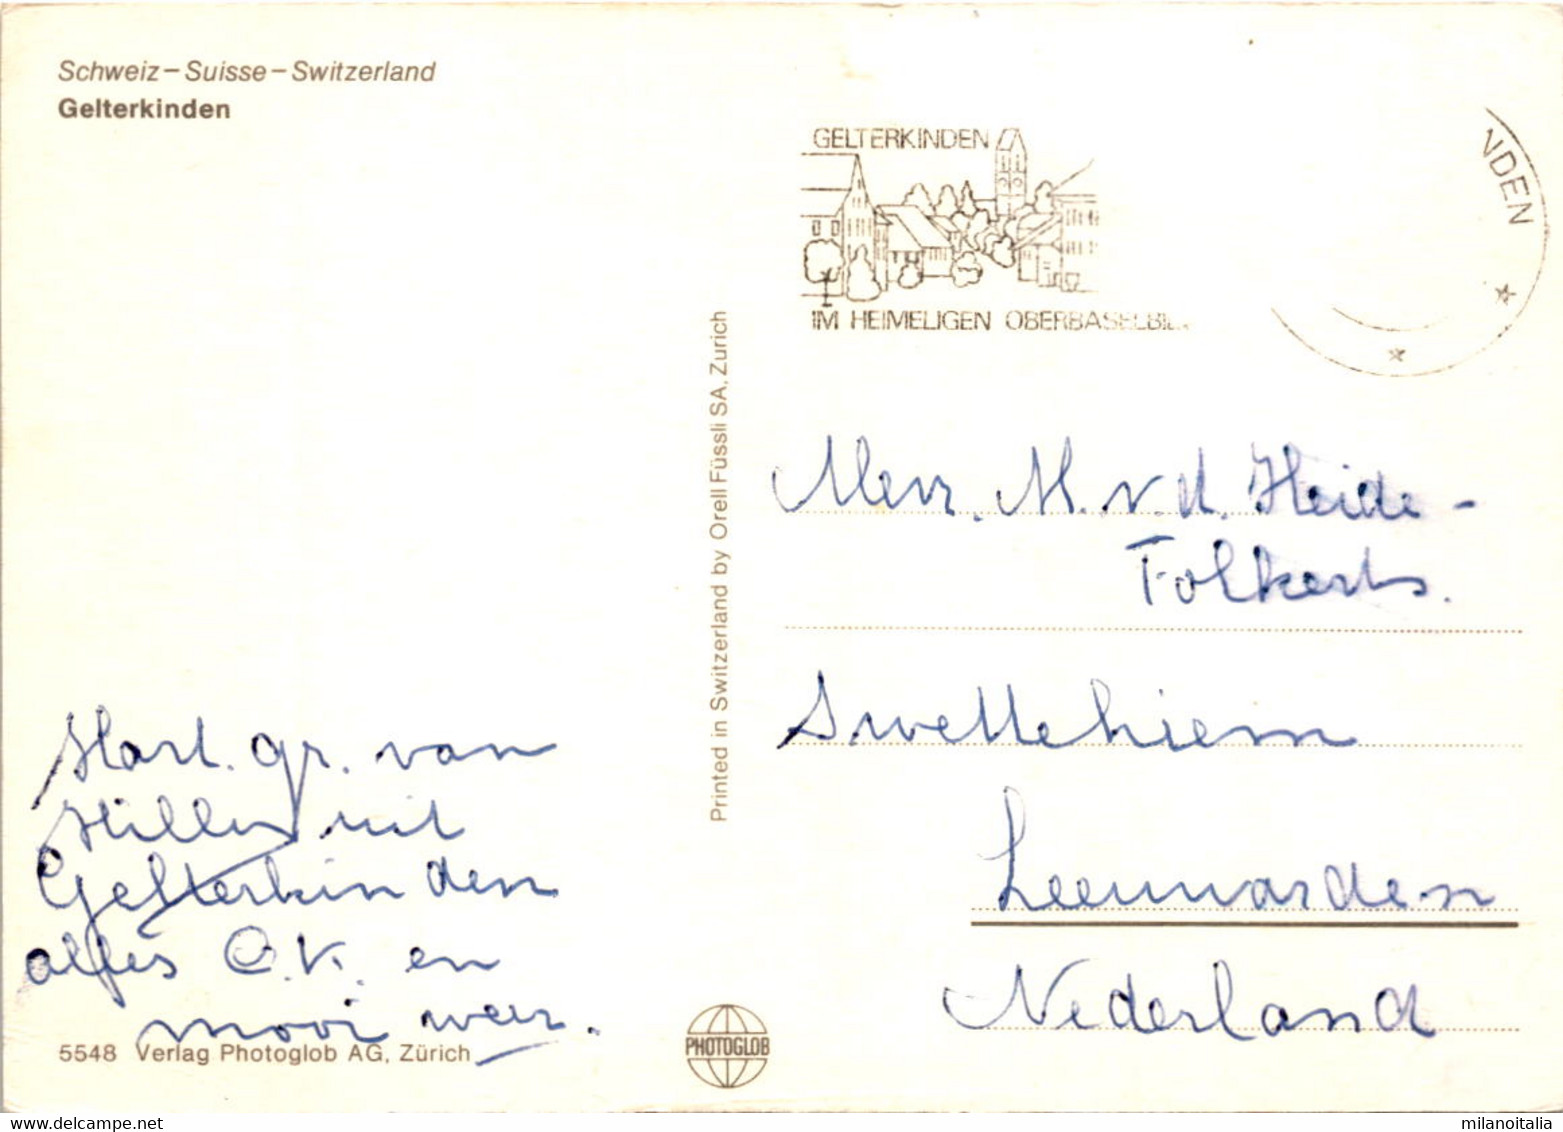 Schweiz – Suisse – Switzerland
Gelterkinden
GELTERKINDEN
IM HEIMELIGEN OBERBASELBIE
NDEN
Printed in Switzerland by Orell Füssli SA, Zurich
Mevr. M. v.d. Heide -
Folkerts.
Swettehiem
Leeuwarden
Nederland
Hart. gr. van
uit
Gelterkinden
alles O.K. en
mooi weer.
5548 Verlag Photoglob AG, Zürich
PHOTOGLOB
milanoitalia